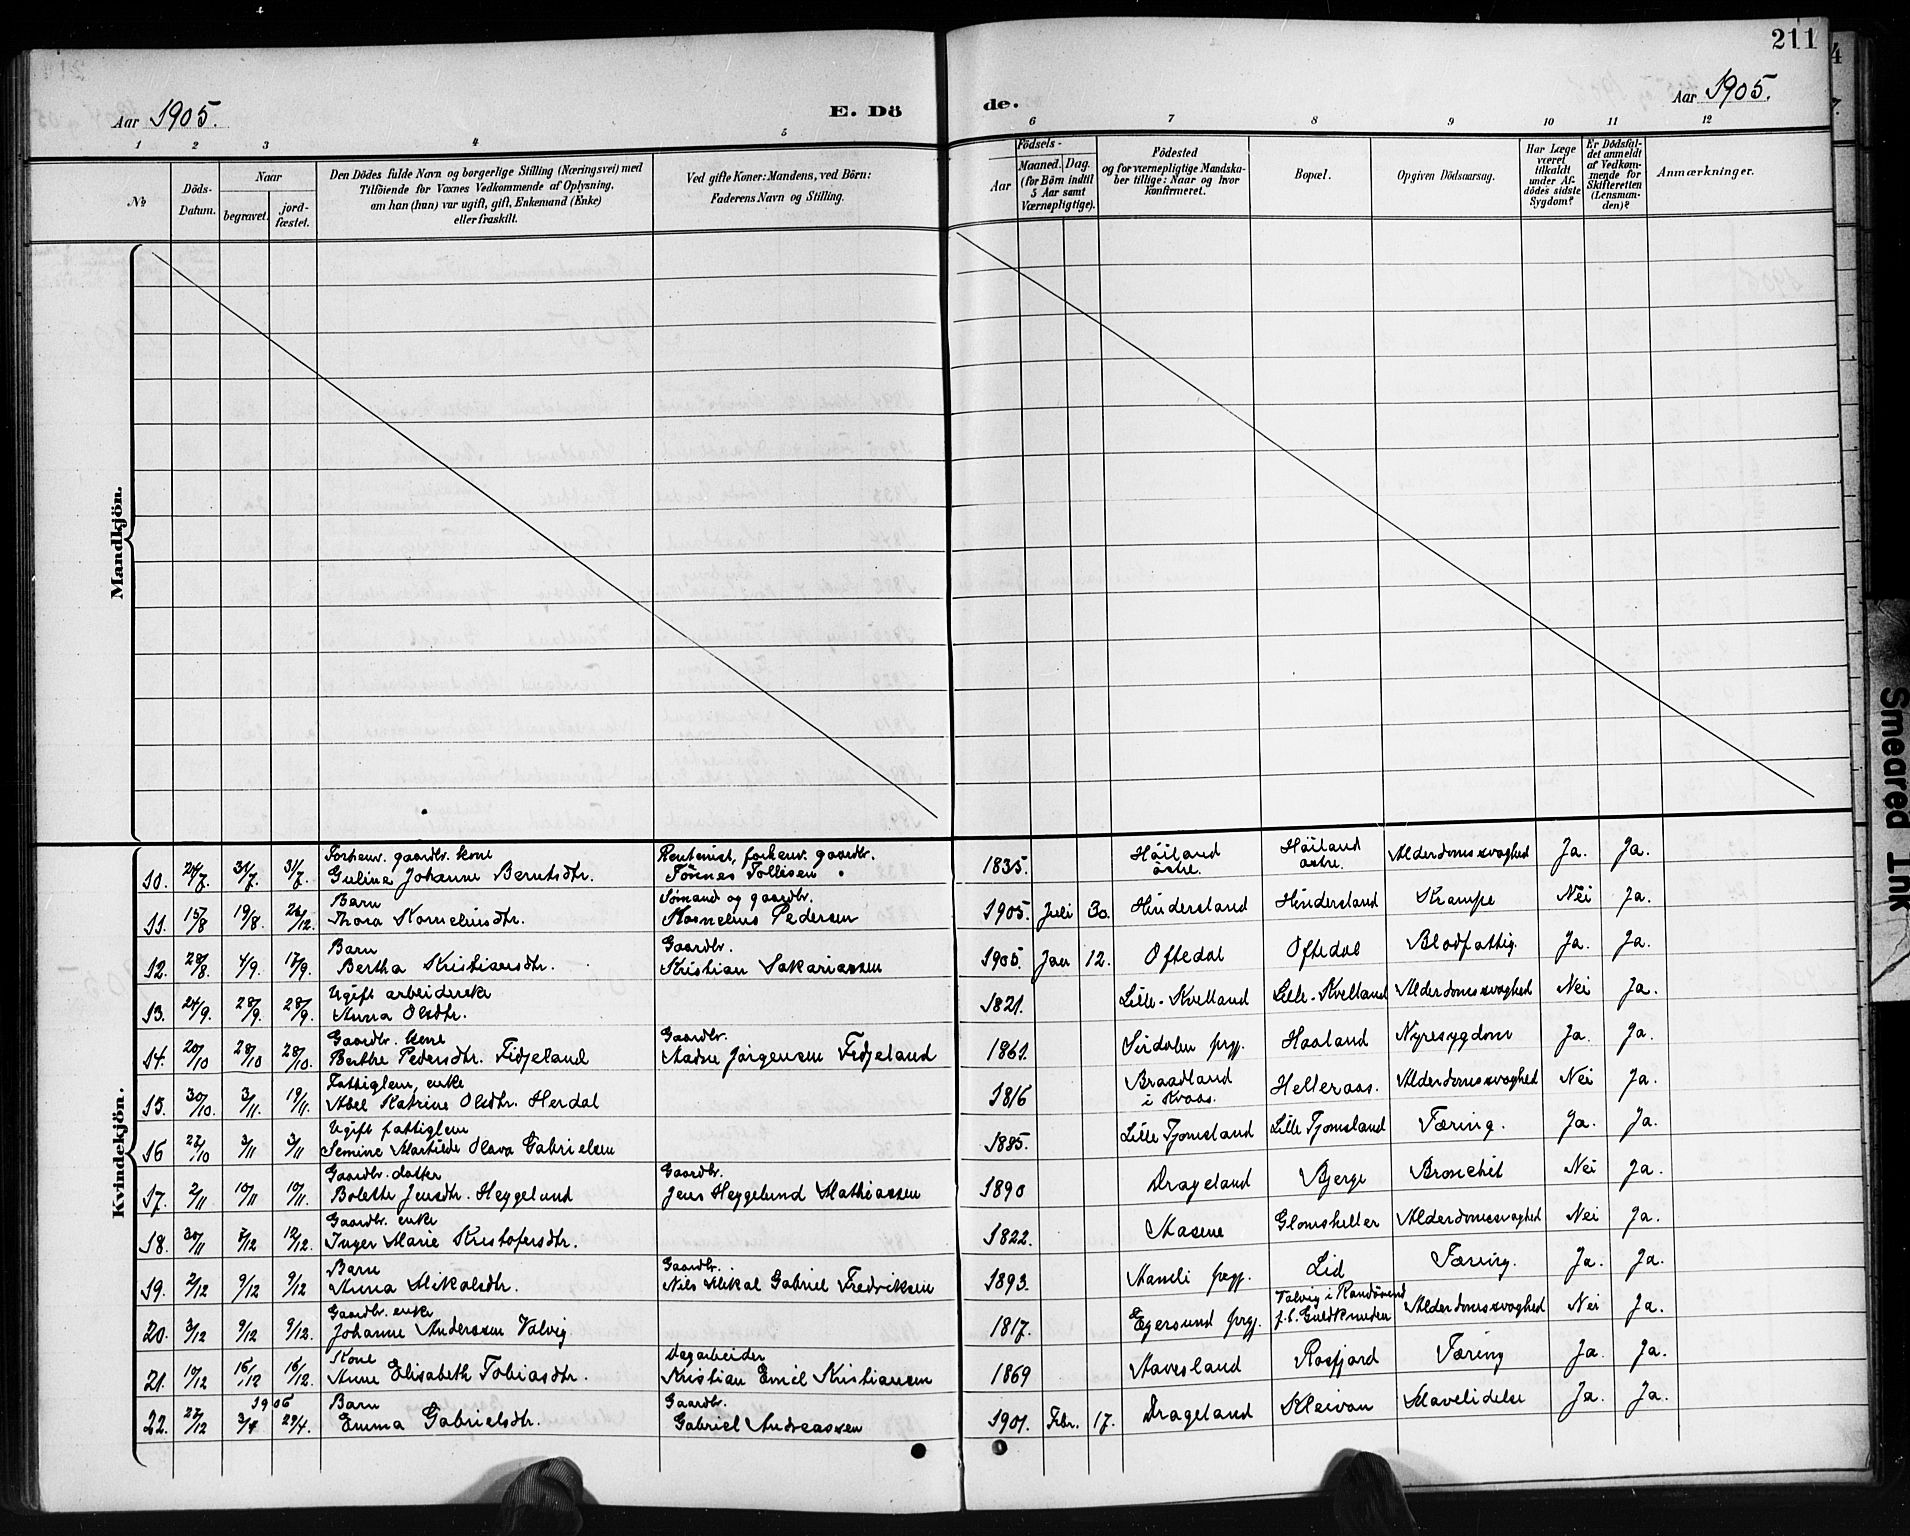 211
Aar 1905.
E. Döde.
Aar 1905.
1 2 3 4 5 6 7 8 9 10 11 12
No
Döds-Datum.
Naar
begravet.
jord-fæstet.
Den Dödes fulde Navn og borgerlige Stilling (Næringsvei) med
Tilföiende for Voxnes Vedkommende af Oplysning,
om han (hun) var ugift, gift, Enkemand (Enke)
eller fraskilt.
Ved gifte Koner: Mandens, ved Börn:
Faderens Navn og Stilling.
Födsels-
Aar
Maaned.
Dag.
(for Börn indtil
5 Aar samt
Værnepligtige).
Födested
og for værnepligtige Mandska-
ber tillige: Naar og hvor
konfirmeret.
Bopæl.
Opgiven Dödsaarsag.
Har Læge
været
tilkaldt
under Af-
dödes sidste
Sygdom?
Er Dödsfal-
det anmeldt
af Vedkom-
mende for
Skifteretten
(Lensman-
den)?
Anmærkninger.
Mandkjön.
Kvindekjön.
10. 24/7 31/7 31/7 Forhenv. gaardbr. kone Guline Johanne Berntsdtr. Rentenist, forhenv. gaardbr. Tönnes Tollisen 1835. Höiland östre. Höiland östre. Alderdomssvaghed Ja. Ja.
11. 15/8 19/8 /12. Barn Thora Korneliusdtr. Sömand og gaardbr. Kornelius Pedersen 1905. Juli 30. Hindersland Hindersland Krampe Nei Ja.
12. 28/8. 4/9. 17/9. Barn Bertha Kristiansdtr. Gaardbr. Kristian Sakariassen 1905. Jan 12. Oftedal Oftedal Blodfattig. Ja. Ja.
13. 24/9. 28/9. 28/9. Ugift arbeiderske Anna Olsdtr. 1821. Lille-Kvelland Lille-Kvelland Alderdomssvaghed Nei Ja.
14. 20/10 28/10 28/10. Gaardbr. kone Berthe Pedersdtr. Fidjeland Gaardbr. Aadne Jörgensen Fidjeland 1861. Sirdalen prgj. Haaland Nyresygdom Ja. Ja.
15. 30/10. 3/11. 19/11. Fattiglem, enke Abel Katrine Olsdtr. Herdal 1816 Braadland i Kvaas. Helleraas. Alderdomssvaghed Nei Ja.
16 22/10 3/11 3/11 Ugift fattiglem Semine Martilde Olava Gabrielsen 1885. Lille Tjomsland Lille Tjomsland Tæring. Ja. Ja.
17. 2/11 10/11 10/11. Gaardbr. datter Bolette Jensdtr. Heggelund Gaardbr. Jens Heggelund Mathiassen 1890 Drageland Bjerge Bronchit Nei Ja.
18. 30/11 8/12 12/12. Gaardbr. enke Inger Marie Kristofersdtr. 1822. Aasene Glomsheller Alderdomssvaghed Nei Ja.
19. 2/12 9/12 9/12 Barn Anna Mikalsdtr. Gaardbr. Nils Mikal Gabriel Fredriksen 1893. Aaseli prgj. Lid Tæring. Ja. Ja.
20. 3/12 9/12 9/12. Gaardbr. enke Johanne Anderssen Valvig. 1817. Egersund prgj. Talvig i Randösund p.t. Guldsmeden Alderdomssvaghed Nei Ja.
21. 10/12 16/12 16/12. Kone Anne Elisabeth Tobiasdtr. Dagarbeider Kristian Emil Kristiansen 1869 Aavesland Rosfjord Tæring Ja. Ja.
1906
22. 27/12 3/4 29/4. Barn Emma Gabrielsdtr. Gaardbr. Gabriel Andreassen 1901. Febr. 17. Drageland Kleivan Mavelidelse Ja. Ja.
Smeared Ink